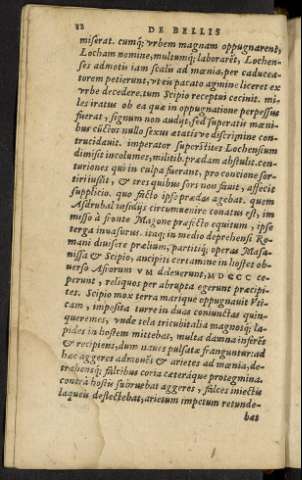 82 DE BELLIS
miserat. cumq; vrbem magnam oppugnarent,
Locham nomine, multumq; laborarēt, Lochen-
ses admotis iam scalis ad mœnia, per caducea-
torem petierunt, vt eis pacato agmine liceret ex
vrbe decedere, tum Scipio receptui cecinit. mi-
les iratus ob ea quæ in oppugnatione perpessus
fuerat, signum non audijt, sed superatis mœni-
bus cūctos nullo sexus ætatisve discrimine con-
trucidauit. imperator superstites Lochensium
dimisit incolumes, militib. prædam abstulit. cen-
turiones qui in culpa fuerant, pro concione sor-
tiri iussit, & tres quibus sors non fauit, affecit
supplicio. quo facto ipse prædas agebat. quem
Asdrubal insidijs circumuenire conatus est, im-
misso à fronte Magone præfecto equitum, ipse
terga inuasurus. itaq; in medio deprehensi Ro-
mani diuisere prælium, partitiq; operas Masa-
nissa & Scipio, ancipiti certamine in hostes ob-
uerso Afrorum VM deleuerunt, MDCCC ce-
perunt, reliquos per abrupta egerunt præcipi-
tes. Scipio mox terra marique oppugnauit Vti-
cam, imposita turre in duas coniunctas quin-
queremes, vnde tela tricubitalia magnosq; la-
pides in hostem mittebat, multa damna inferēs
& recipiens, dum naues pulsatæ franguntur: ad
hoc aggeres admouēs & arietes ad mœnia, de-
trahensq; falcibus coria cæteráque protegmina.
contrà hostis subruebat aggeres, falces iniectis
laqueis deflectebat, arietum impetum retunde-
bat